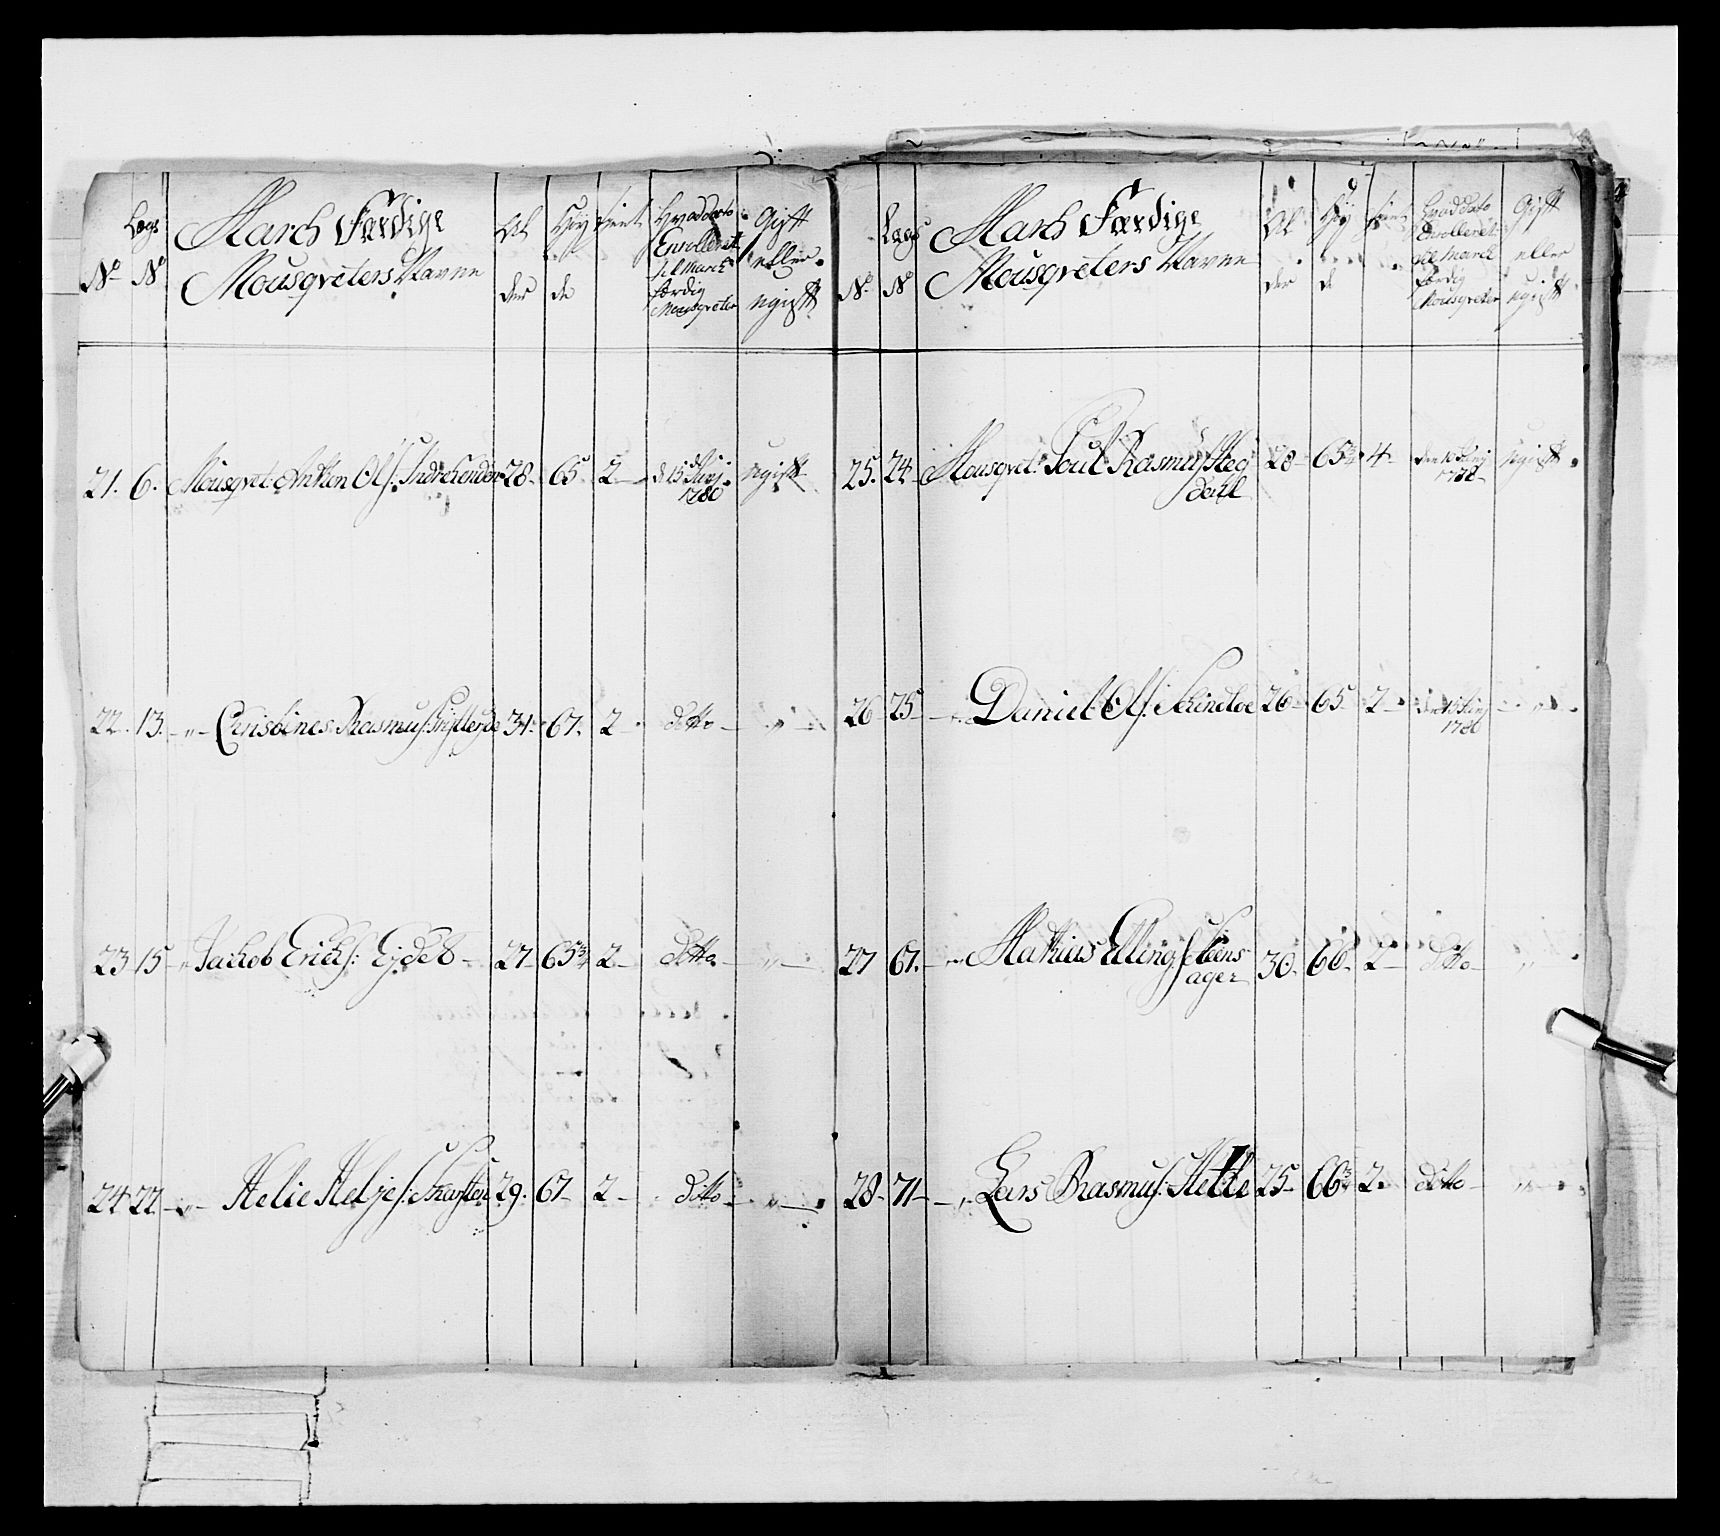 Lægs
No No
March Færdige
Mousqveters Navne
Al
der
Høy
de
tient
Hvad dato
Enrolleret
til March
færdig
Mousqveter
Gift
eller
ugift
21. 6. Mousqvet. Anthon Ols: Indresender 28. 65 2 d 15 Junj 1780 ugift
22. 13. „ Chrisoines Rasmus: 31. 67. 2 ditto „
23 15 „ Jachob Erichs: Eydet 27 65¾ 2 ditto „
24 22 „ Helie Heljes: 29. 67 2 ditto „
Lægs
No No
March Færdige
Mousqveters Navne
Al
der
Høy
de
tient
Hvad dato
Enrolleret
til March
færdig
Mousqveter
Gift
eller
ugift
25. 24 Mousqvet. Poul Rasmus: Steg 28 65¾ 4 den 10 Junj ugift
dahl 1778
26 25 „ Daniel Ols: Schindloe 26 65 2 den 15 Junj „
1780
27 67. „ Mathias Ellings: Steens 30. 66 2 ditto „
ager
28 71 „ Lars Rasmus: Helle 25 66¾ 2. ditto „